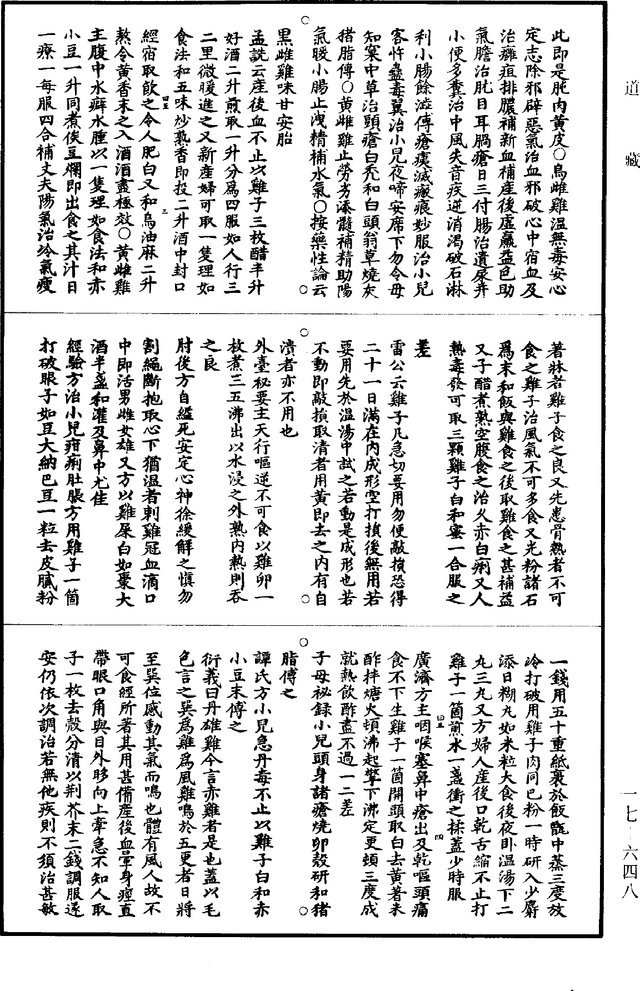 道藏
此即是肫內黃皮〇烏雌雞溫無毒安心
定志除邪辟惡氣治血邪破心中宿血及
治癰疽排膿補新血補產後虛羸益色助
氣膽治肬目耳䏺瘡日三付腸治遺尿并
小便多糞治中風失音痰逆消渴破石淋
利小腸餘瀝傅瘡痍滅瘢痕妙服治小兒
客忤蠱毒翼治小兒夜啼安席下勿令母
知窠中草治頭瘡白禿和白頭翁草燒灰
猪脂傅〇黃雌雞止勞劣添髓補精助陽
氣暖小腸止洩精補水氣〇按藥性論云
黑雌雞味甘安胎
孟詵云產後血不止以雞子三枚醋半升
好酒二升煎取一升分為四服如人行三
二里微暖進之又新產婦可取一隻理如
食法和五味炒熟香即投二升酒中封口
經宿取飲之令人肥白又和烏油麻二升
熬令黃香末之入酒酒盡極效〇黃雌雞
主腹中水癖水腫以一隻理如食法和赤
小豆一升同煮俟豆爛即出食之其汁日
二療一每服四合補丈夫陽氣治冷氣瘦
著牀者雞子食之良又先患骨熱者不可
食之雞子治風氣不可多食又光粉諸石
為末和飯與雞食之後取雞食之甚補益
又子醋煮熟空腹食之治久赤白痢又人
熱毒發可取三顆雞子白和蜜一合服之
差
雷公云雞子凡急切要用勿便敲損恐得
二十一日滿在內成形空打損後無用若
要用先於溫湯中試之若動是成形也若
不動即敲損取清者用黃即去之內有自
潰者亦不用也
外臺秘要主天行嘔逆不可食以雞卵一
枚煮三五沸出以水浸之外熟內熱則吞
之良
肘後方自縊死安定心神徐緩解之慎勿
割繩斷抱取心下猶溫者刺雞冠血滴口
中即活男雌女雄又方以雞屎白如棗大
酒半盞和灌及鼻中尤佳
經驗方治小兒疳痢肚脹方用雞子一箇
打破眼子如豆大納巴豆一粒去皮膩粉
一錢用五十重紙裹於飯甑中蒸三度放
冷打破用雞子肉同巴粉一時研入少麝
添日糊丸如米粒大食後夜臥溫湯下二
丸三丸又方婦人產後口乾舌縮不止打
雞子一箇煎水一盞衝之抹蓋少時服
廣濟方主咽喉塞鼻中瘡出及乾嘔頭痛
食不下生雞子一箇開頭取白去黃著米
酢拌煻火頓沸起擎下沸定更頓三度成
就熱飲酢盡不過一二差
子母祕錄小兒頭身諸瘡燒卵殼研和猪
脂傅之
譚氏方小兒急丹毒不止以雞子白和赤
小豆末傅之
衍義曰丹雄雞今言赤雞者是也蓋以毛
色言之巽為雞為風雞鳴於五更者日將
至巽位感動其氣而鳴也體有風人故不
可食經所著其用甚備產後血暈身痙直
帶眼口角與目外眵向上牽急不知人取
子一枚去殼分清以荆芥末二錢調服遂
安仍依次調治若無他疾則不須治甚敏
一七—六四八